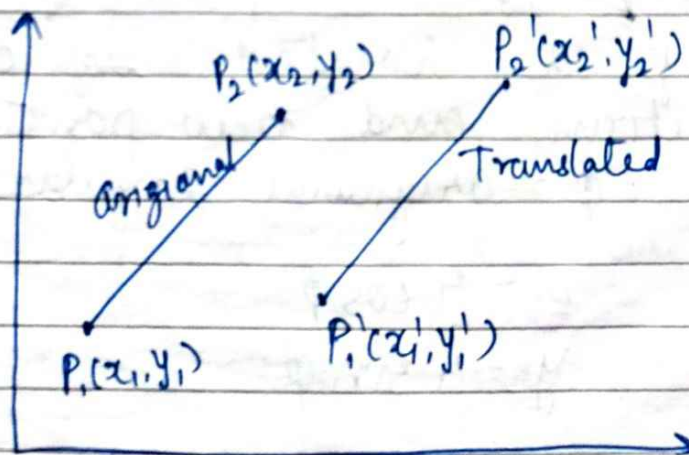 P₂(x₂,y₂)
P₂'(x₂',y₂')
original
Translated
P₁(x₁,y₁)
P₁'(x₁',y₁')